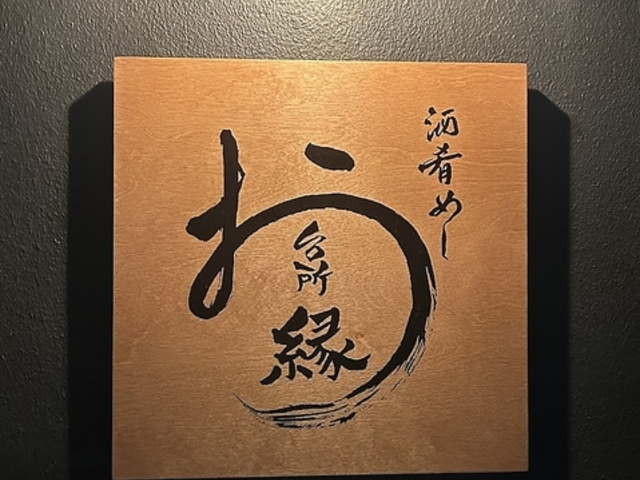 酒肴めし
お台所
縁